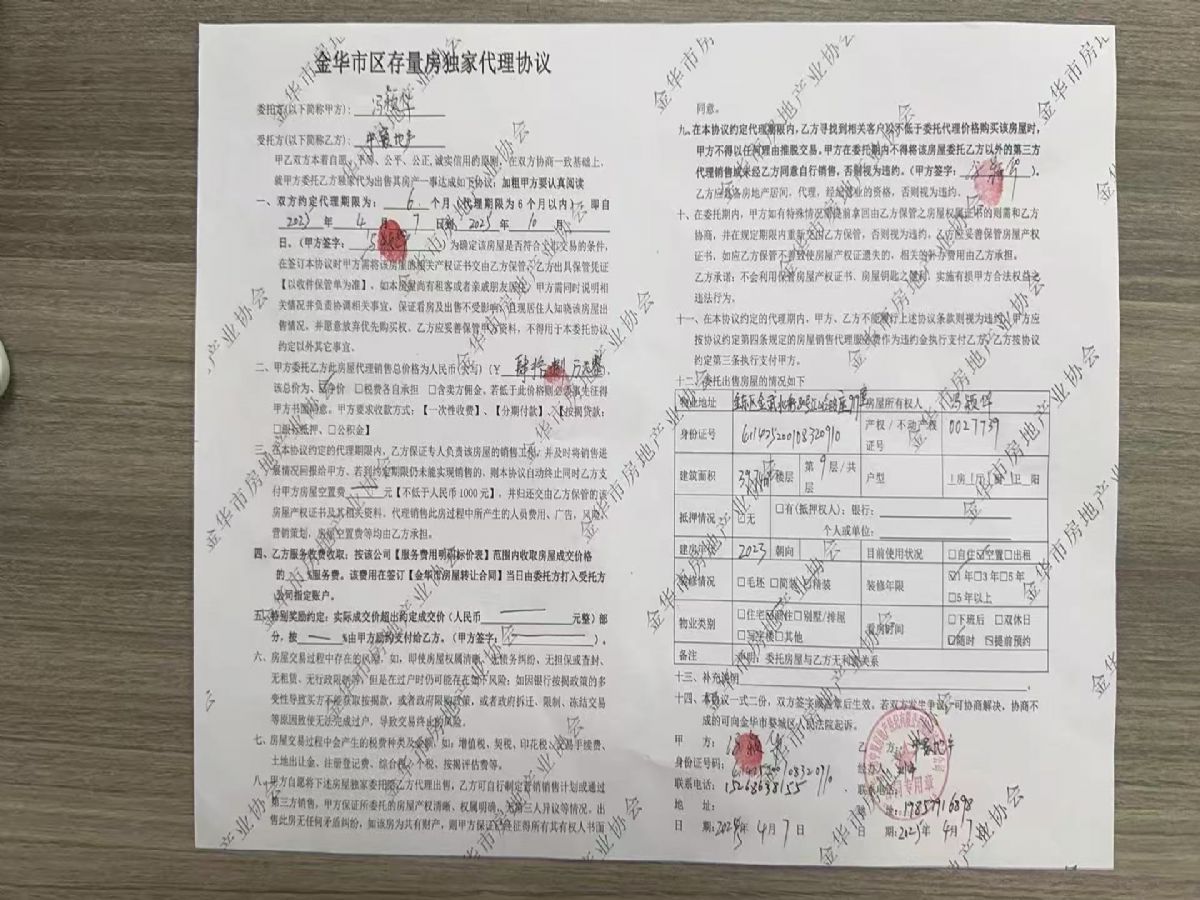 金华市区存量房独家代理协议
委托方(以下简称甲方): 冯颖华
受托方(以下简称乙方): 中寰地产
甲乙双方本着自愿、平等、公平、公正、诚实信用的原则，在双方协商一致基础上，
就甲方委托乙方独家代为出售其房产一事达成如下协议，加粗甲方要认真阅读
一、双方约定代理期限为: 6 个月（代理期限为6个月以内），即自
2025 年 4 月 7 日到 2025 年 10 月
日。（甲方签字: 为确定该房屋是否符合上市交易的条件，
在签订本协议时甲方需将该房屋的相关产权证书交由乙方保管，乙方出具保管凭证
【以收件保管单为准】。如本房屋尚有租客或者亲戚朋友居住，甲方需同时说明相
关情况并负责协调相关事宜，保证看房及出售不受影响，且现居住人知晓该房屋出
售情况，并愿意放弃优先购买权。乙方应妥善保管甲方资料，不得用于本委托协议
约定以外其它事宜。
二、甲方委托乙方此房屋代理销售总价格为人民币(大写)(￥ 肆拾捌万元整
该总价为、☑净价 □税费各自承担 □含卖方佣金。若低于此价格则必须事先征得
甲方书面同意。甲方要求收款方式:【一次性收费】、【分期付款】、【按揭贷款:
□银行抵押、□公积金】
三、在本协议约定的代理期限内，乙方保证专人负责该房屋的销售工作，并及时将销售进
展情况回报给甲方、若到约定期限仍未能实现销售的，则本协议自动终止同时乙方支
付甲方房屋空置费 元【不低于人民币1000元】，并归还交由乙方保管的该
房屋产权证书及其相关资料。代理销售此房过程中所产生的人员费用、广告、风险、
营销策划、房屋空置费等均由乙方承担。
四、乙方服务收费收取: 按该公司【服务费用明码标价表】范围内收取房屋成交价格
的 %服务费。该费用在签订【金华市房屋转让合同】当日由委托方打入受托方
公司指定账户。
五、特别奖励约定: 实际成交价超出约定成交价（人民币 元整）部
分，按 %由甲方励约支付给乙方。（甲方签字: ）。
六、房屋交易过程中存在的风险。如，即使房屋权属清晰、无债务纠纷、无担保或查封、
无租赁、无行政限制等，但是在过户时仍可能存在如下风险: 如因银行按揭政策的多
变性导致买方不能获取按揭款，或者政府限购政策，或者政府拆迁、限制、冻结交易
等原因致使无法完成过户，导致交易终止的风险。
七、房屋交易过程中会产生的税费种类及金额，如: 增值税、契税、印花税、交易手续费、
土地出让金、注册登记费、综合税、个税、按揭评估费等。
八、甲方自愿将下述房屋独家委托乙方代理出售，乙方可自行制定营销销售计划或通过
第三方销售，甲方保证所委托的房屋产权清晰、权属明确、无第三人异议等情况，出
售此房无任何矛盾纠纷，如该房为共有财产，则甲方保证已经征得所有其有权人书面
同意。
九、在本协议约定代理期限内，乙方寻找到相关客户以不低于委托代理价格购买该房屋时，
甲方不得以任何理由推脱交易。甲方在委托期内不得将该房屋委托乙方以外的第三方
代理销售或未经乙方同意自行销售，否则视为违约。（甲方签字: 冯颖华 ）。
乙方应具备房地产居间、代理、经纪营业的资格，否则视为违约。
十、在委托期内，甲方如有特殊情况需提前拿回由乙方保管之房屋权属证书的则需和乙方
协商，并在规定期限内重新交由乙方保管，否则视为违约。乙方应妥善保管房屋产权
证书，如应乙方保管不善致使房屋产权证遗失的，相关的补办费用由乙方承担。
乙方承诺: 不会利用保管房屋产权证书、房屋钥匙之便利，实施有损甲方合法权益之
违法行为。
十一、在本协议约定的代理期内，甲方、乙方不能履行上述协议条款则视为违约，甲方应
按协议约定第四条规定的房屋销售代理服务费作为违约金执行支付乙方，乙方按协议
约定第三条执行支付甲方。
十二、委托出售房屋的情况如下
物业地址 房屋所有权人 冯颖华
身份证号 611425200108320910 产权/不动产权证号 0027739
建筑面积 楼层 第 9 层/共 层 户型 1房1厅 厨 卫 阳
抵押情况 ☑无 □有(抵押权人): 银行:
个人或单位:
建房年代 2023 朝向 目前使用状况 □自住☑空置□出租
装修情况 □毛坯 □简装 □精装 装修年限 ☑1年□3年□5年
□5年以上
物业类别 □住宅□商住□别墅/排屋
□写字楼□其他 看房时间 □下班后 □双休日
☑随时 ☑提前预约
备注 申明: 委托房屋与乙方无利害关系
十三、补充说明
十四、本协议一式二份，双方签字或盖章后生效。若双方发生争议，可协商解决，协商不
成的可向金华市婺城区人民法院起诉。
甲 方: 冯颖华 乙 方: 中寰地产
身份证号码: 611425200108320910 经办人:
联系电话: 15268638155 联系电话:
地 址: 17857916898
日 期: 2025年 4月 7 日 日 期: 2025年 4月 7 日
金华市房地产业协会